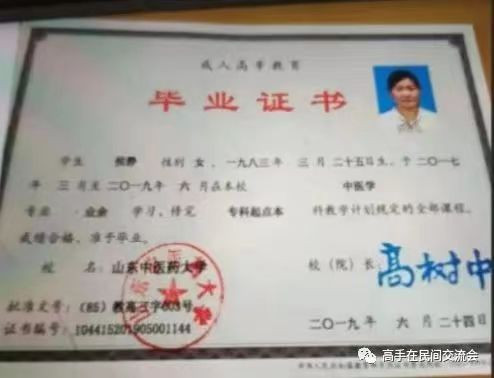 成人高等教育
毕业证书
学生 张静 性别 女，一九八三年 三 月 二十五日生，于 二〇一七
年 三 月至 二〇一九年 六 月在本校 中医学
专业 业余 学习，修完 专科起点本 科教学计划规定的全部课程，
成绩合格，准予毕业。
校 名：山东中医药大学 校（院）长： 高树中
批准文号：(85) 教高三字003号
证书编号：104415201905001144 二〇一九年 六 月二十四日
高手在民间交流会